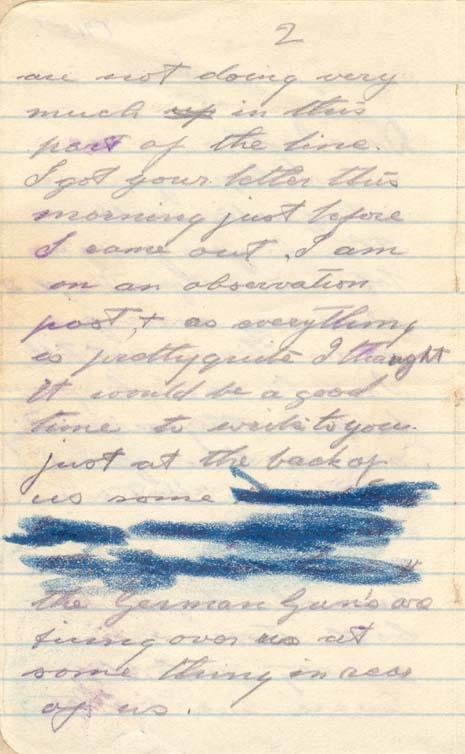 2
are not doing very
much up in this
part of the line.
I got your letter this
morning just before
I came out, I am
on an observation
post, + as everything
is pretty quite I thought
it would be a good
time to write to you.
just at the back of
us some
the German Gun's are
firing over us at
some thing in rear
of us.